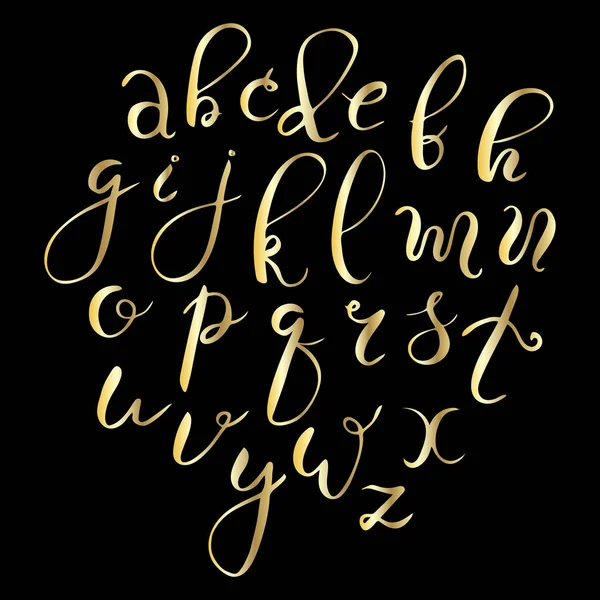 a b c d e f h
g i j k l m n
o p q r s t
u v y w z x